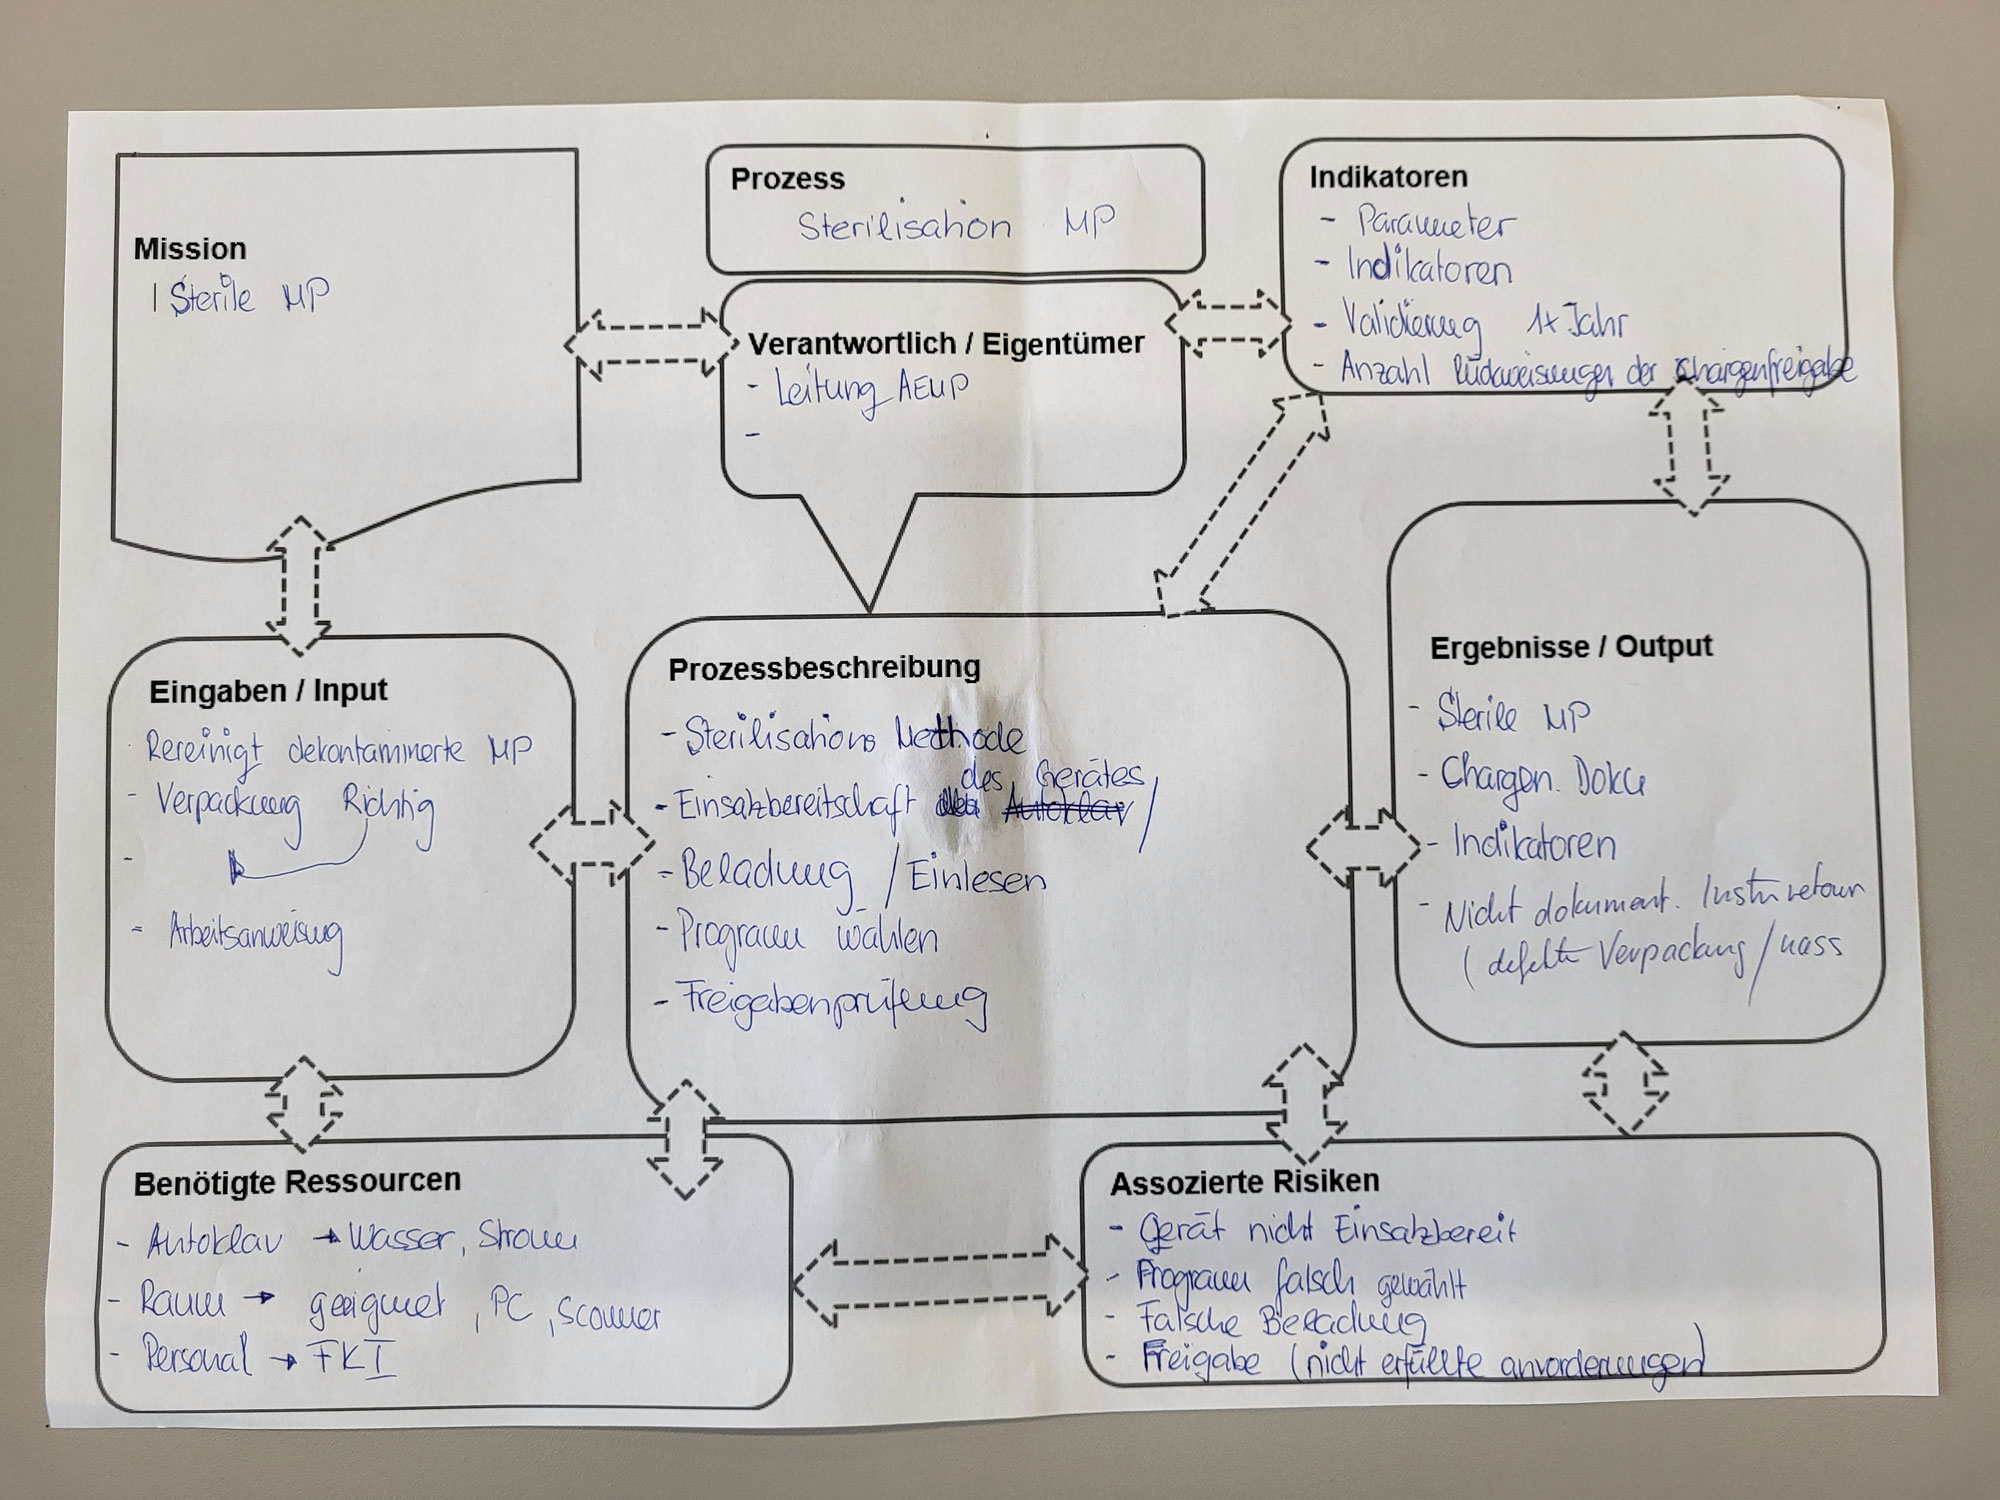 Prozess
Sterilisation MP
Mission
Sterile MP
Verantwortlich / Eigentümer
- Leitung AEMP
-
Indikatoren
- Parameter
- Indikatoren
- Validierung 1x Jahr
- Anzahl Rückweisungen der Chargenfreigabe
Eingaben / Input
Rereinigt dekontaminierte MP
- Verpackung Richtig
-
- Arbeitsanweisung
Prozessbeschreibung
- Sterilisations Methode
des Gerätes
- Einsatzbereitschaft des Autoklav /
- Beladung / Einlesen
- Programm wählen
- Freigabenprüfung
Ergebnisse / Output
- Sterile MP
- Chargen. Doku
- Indikatoren
- Nicht dokument. Instr. retour
( defekte Verpackung / nass
Benötigte Ressourcen
- Autoklav → Wasser, Strom
- Raum → geeignet, PC, Scanner
- Personal → FKI
Assozierte Risiken
- Gerät nicht Einsatzbereit
- Programm falsch gewählt
- Falsche Beladung
- Freigabe (nicht erfüllte anvorderungen)